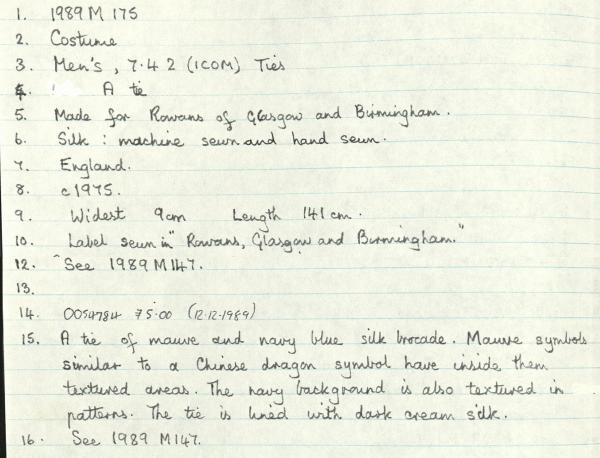 1. 1989 M 175
2. Costume
3. Men's, 7.4 2 (ICOM) Ties
4. A tie
5. Made for Rowans of Glasgow and Birmingham.
6. Silk : machine sewn and hand sewn.
7. England.
8. c1975.
9. Widest 9cm Length 141 cm.
10. Label sewn in "Rowans, Glasgow and Birmingham."
12. See 1989 M147.
13.
14. 0054784 75.00 (12.12.1989)
15. A tie of mauve and navy blue silk brocade. Mauve symbols
similar to a Chinese dragon symbol have inside them
textured areas. The navy background is also textured in
patterns. The tie is lined with dark cream silk.
16. See 1989 M147.